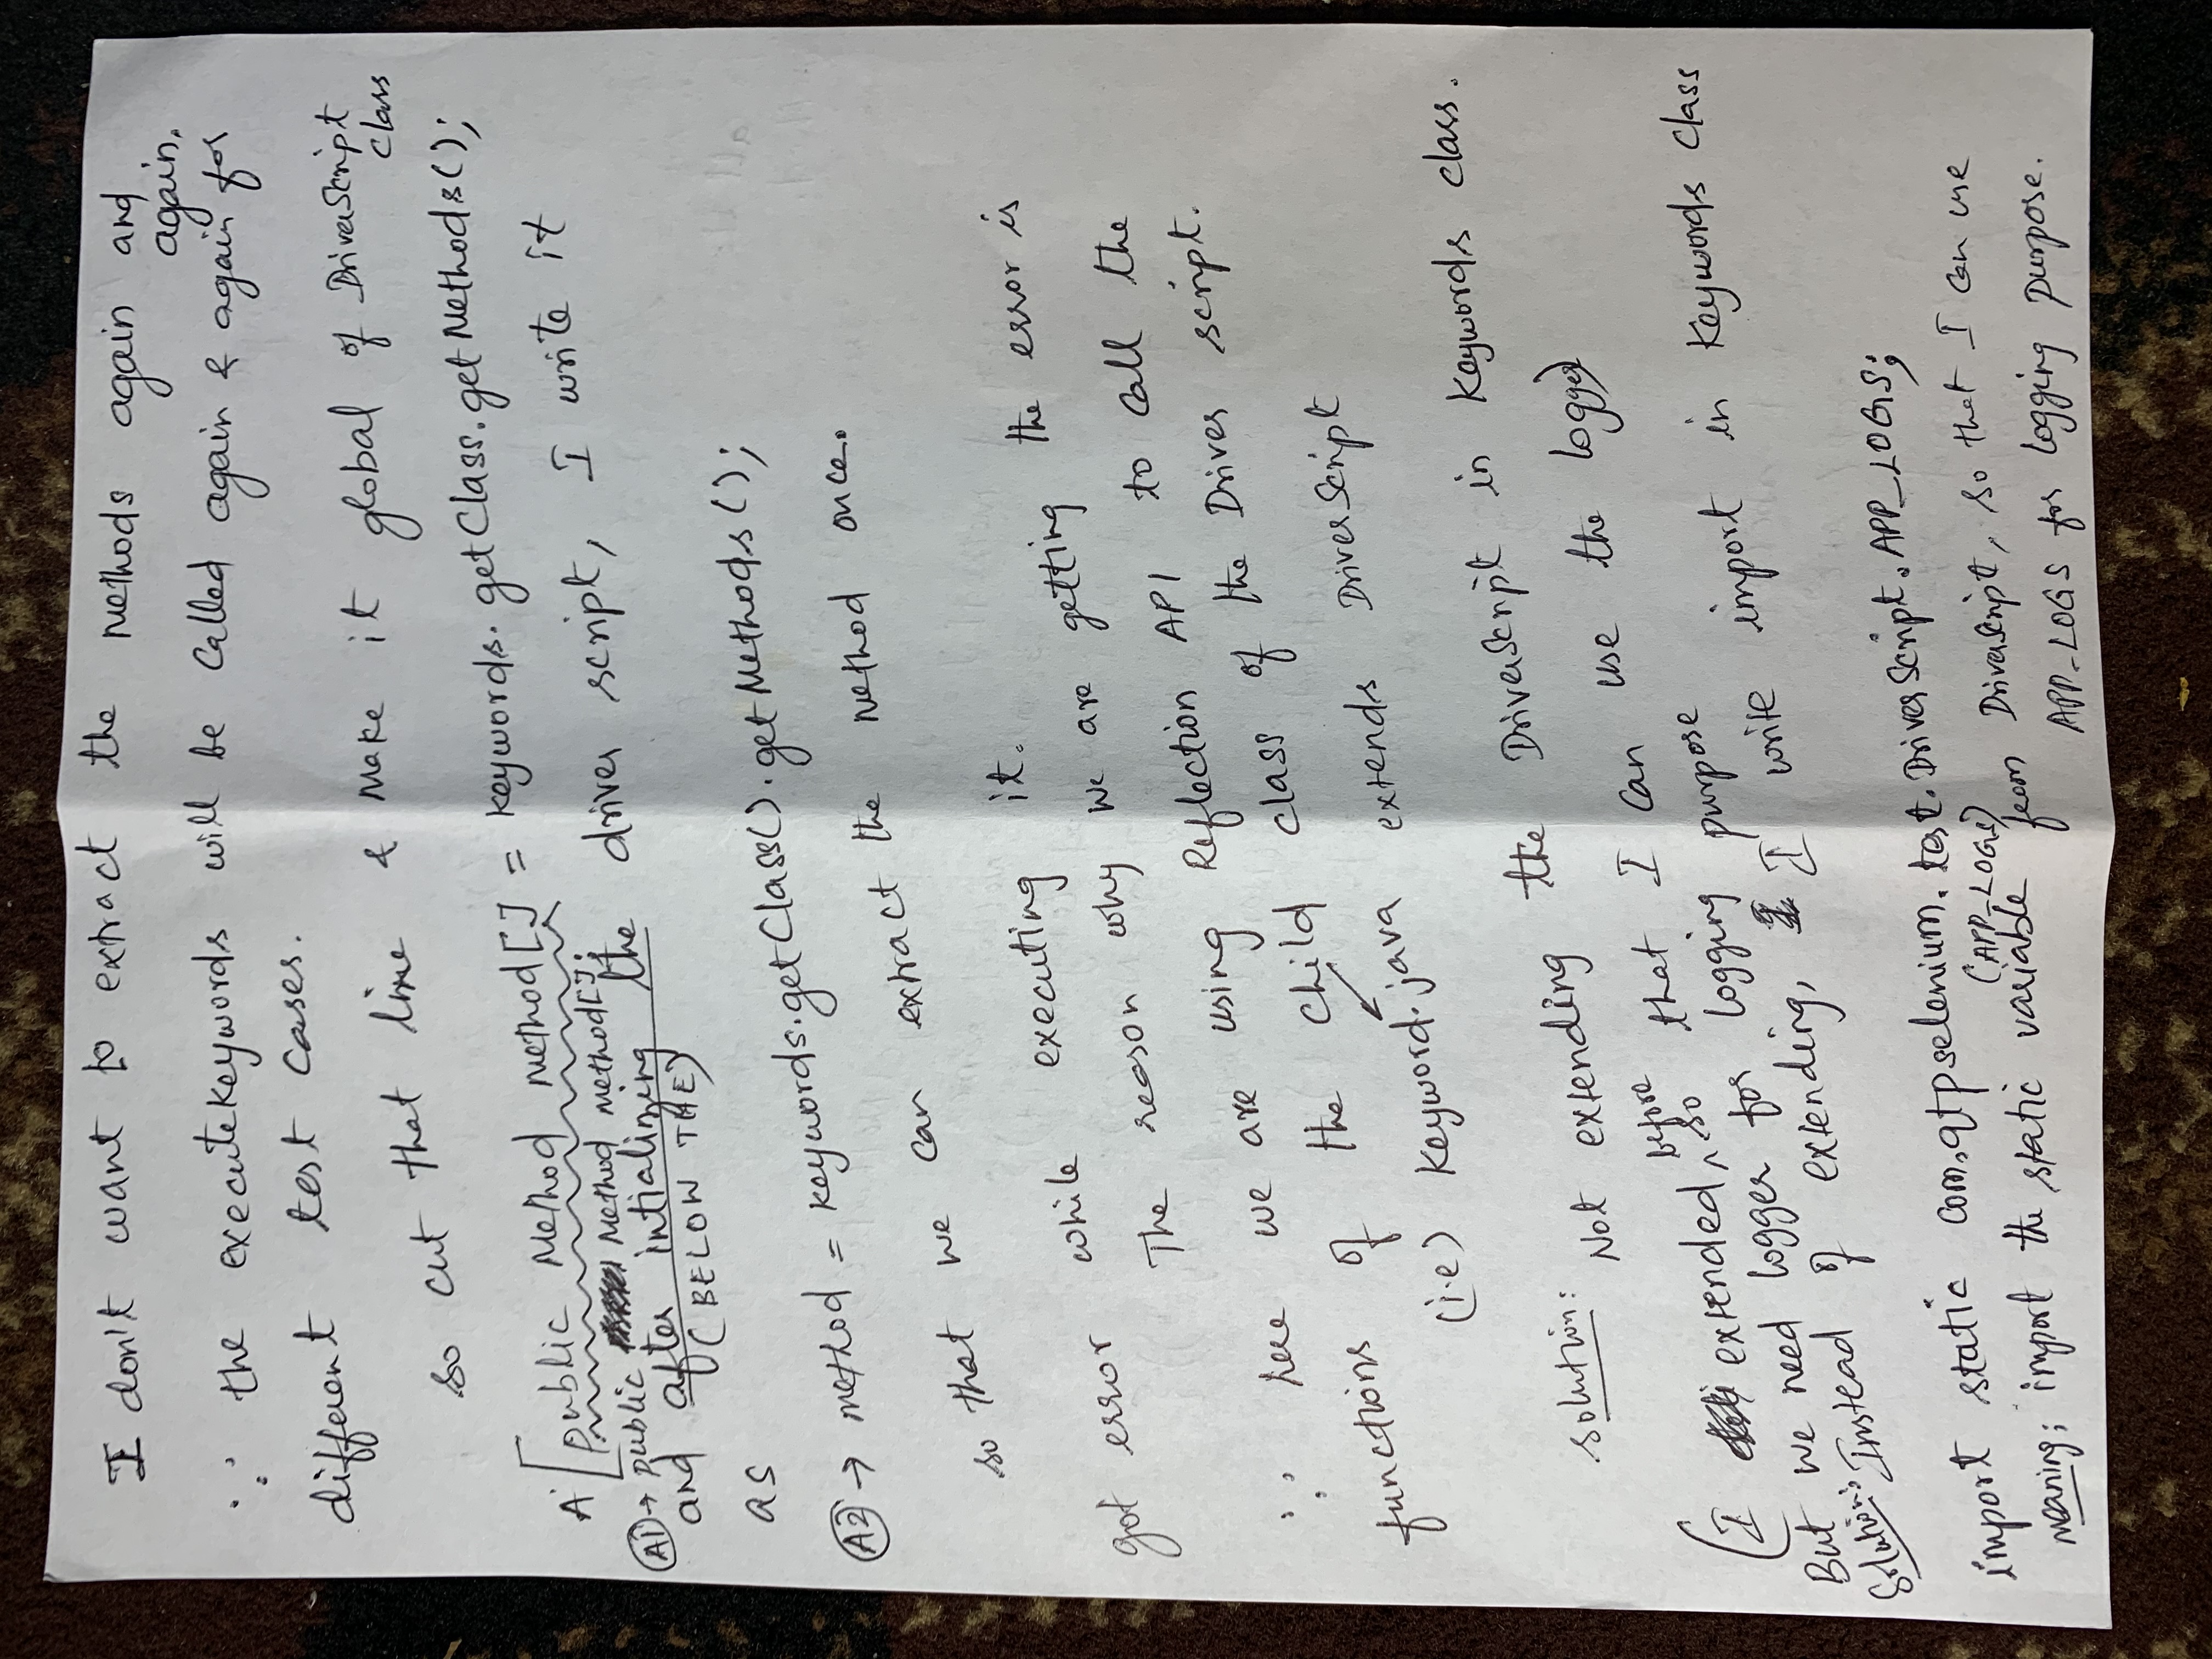 I don't want to extract the methods again and
again.
∵ the executekeywords will be called again & again for
different test cases.
so cut that line & make it global of DriverScript
class
A [public Method method[] = keywords.getClass.getMethods();
(A1) → public Method method[];
and after intializing the driver script, I write it
(BELOW THE)
as
(A2) → method = keywords.getClass().getMethods();
so that we can extract the method once.
got error while executing it.
The reason why we are getting the error is
∵ here we are using Reflection API to call the
functions of the child class of the Driver script.
(i.e) Keyword.java extends DriverScript
solution: Not extending the DriverScript in Keywords class.
before
(I extended, so that I can use the logger)
But we need logger for logging purpose
Solution: Instead of extending, I write import in Keywords class
import static com.qtpselenium.test.DriverScript.APP_LOGS;
(APP_LOGS)
meaning; import the static variable from DriverScript, so that I can use
APP_LOGS for logging purpose.